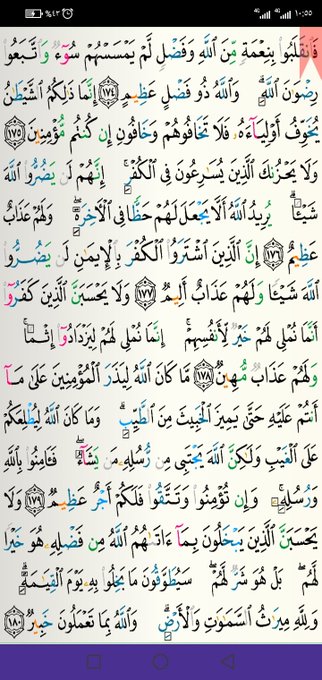 ١٠:٥٥ 4G 4G ٤٣٪
فَٱنقَلَبُوا۟ بِنِعْمَةٍ مِّنَ ٱللَّهِ وَفَضْلٍ لَّمْ يَمْسَسْهُمْ سُوٓءٌ وَٱتَّبَعُوا۟
رِضْوَٰنَ ٱللَّهِ ۗ وَٱللَّهُ ذُو فَضْلٍ عَظِيمٍ ١٧٤ إِنَّمَا ذَٰلِكُمُ ٱلشَّيْطَٰنُ
يُخَوِّفُ أَوْلِيَآءَهُۥ فَلَا تَخَافُوهُمْ وَخَافُونِ إِن كُنتُم مُّؤْمِنِينَ ١٧٥
وَلَا يَحْزُنكَ ٱلَّذِينَ يُسَٰرِعُونَ فِى ٱلْكُفْرِ ۚ إِنَّهُمْ لَن يَضُرُّوا۟ ٱللَّهَ
شَيْـًٔا ۗ يُرِيدُ ٱللَّهُ أَلَّا يَجْعَلَ لَهُمْ حَظًّا فِى ٱلْـَٔاخِرَةِ ۖ وَلَهُمْ عَذَابٌ
عَظِيمٌ ١٧٦ إِنَّ ٱلَّذِينَ ٱشْتَرَوُا۟ ٱلْكُفْرَ بِٱلْإِيمَٰنِ لَن يَضُرُّوا۟
ٱللَّهَ شَيْـًٔا وَلَهُمْ عَذَابٌ أَلِيمٌ ١٧٧ وَلَا يَحْسَبَنَّ ٱلَّذِينَ كَفَرُوٓا۟
أَنَّمَا نُمْلِى لَهُمْ خَيْرٌ لِّأَنفُسِهِمْ ۚ إِنَّمَا نُمْلِى لَهُمْ لِيَزْدَادُوٓا۟ إِثْمًا ۚ
وَلَهُمْ عَذَابٌ مُّهِينٌ ١٧٨ مَّا كَانَ ٱللَّهُ لِيَذَرَ ٱلْمُؤْمِنِينَ عَلَىٰ مَآ
أَنتُمْ عَلَيْهِ حَتَّىٰ يَمِيزَ ٱلْخَبِيثَ مِنَ ٱلطَّيِّبِ ۗ وَمَا كَانَ ٱللَّهُ لِيُطْلِعَكُمْ
عَلَى ٱلْغَيْبِ وَلَٰكِنَّ ٱللَّهَ يَجْتَبِى مِن رُّسُلِهِۦ مَن يَشَآءُ ۖ فَـَٔامِنُوا۟ بِٱللَّهِ
وَرُسُلِهِۦ ۚ وَإِن تُؤْمِنُوا۟ وَتَتَّقُوا۟ فَلَكُمْ أَجْرٌ عَظِيمٌ ١٧٩ وَلَا
يَحْسَبَنَّ ٱلَّذِينَ يَبْخَلُونَ بِمَآ ءَاتَىٰهُمُ ٱللَّهُ مِن فَضْلِهِۦ هُوَ خَيْرًا
لَّهُم ۖ بَلْ هُوَ شَرٌّ لَّهُمْ ۖ سَيُطَوَّقُونَ مَا بَخِلُوا۟ بِهِۦ يَوْمَ ٱلْقِيَٰمَةِ ۗ
وَلِلَّهِ مِيرَٰثُ ٱلسَّمَٰوَٰتِ وَٱلْأَرْضِ ۗ وَٱللَّهُ بِمَا تَعْمَلُونَ خَبِيرٌ ١٨٠